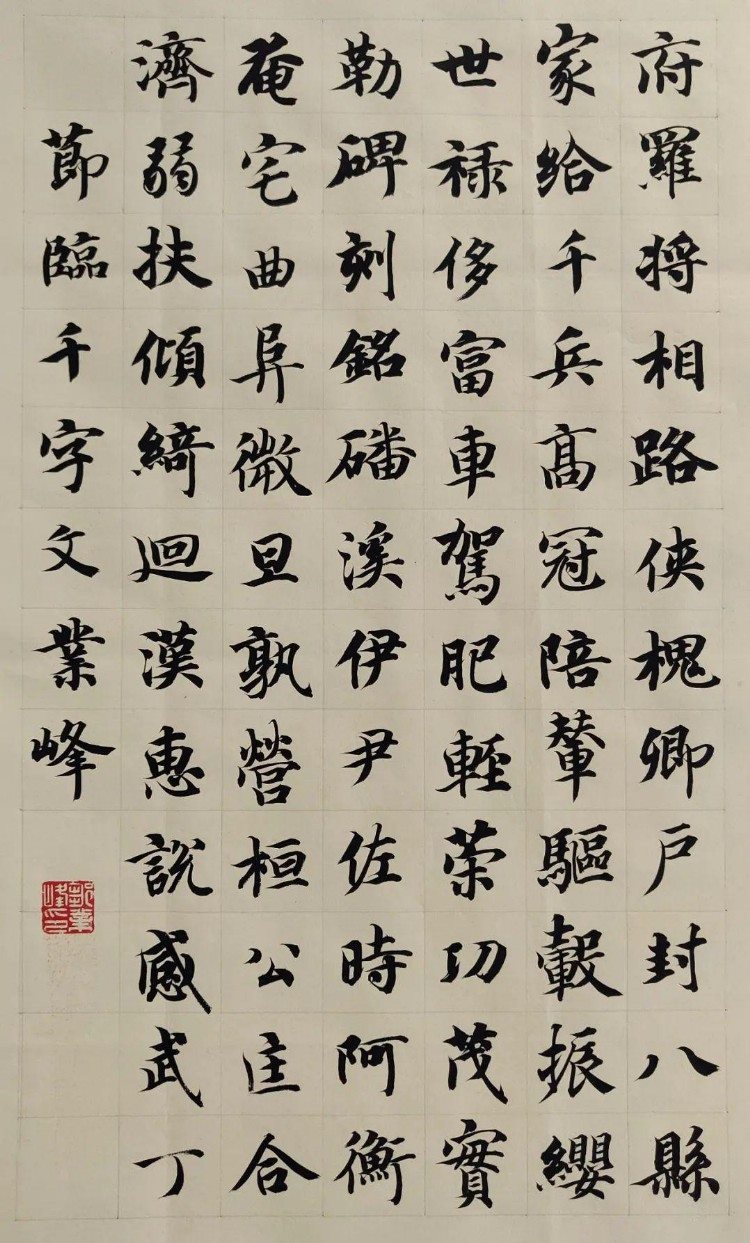 府羅將相路俠槐卿戶封八縣
家給千兵髙冠陪輦驅轂振纓
世禄侈富車駕肥輕策功茂實
勒碑刻銘磻溪伊尹佐時阿衡
奄宅曲阜微旦孰營桓公匡合
濟弱扶傾綺迴漢惠說感武丁
節臨千字文業峰
郭業峰印